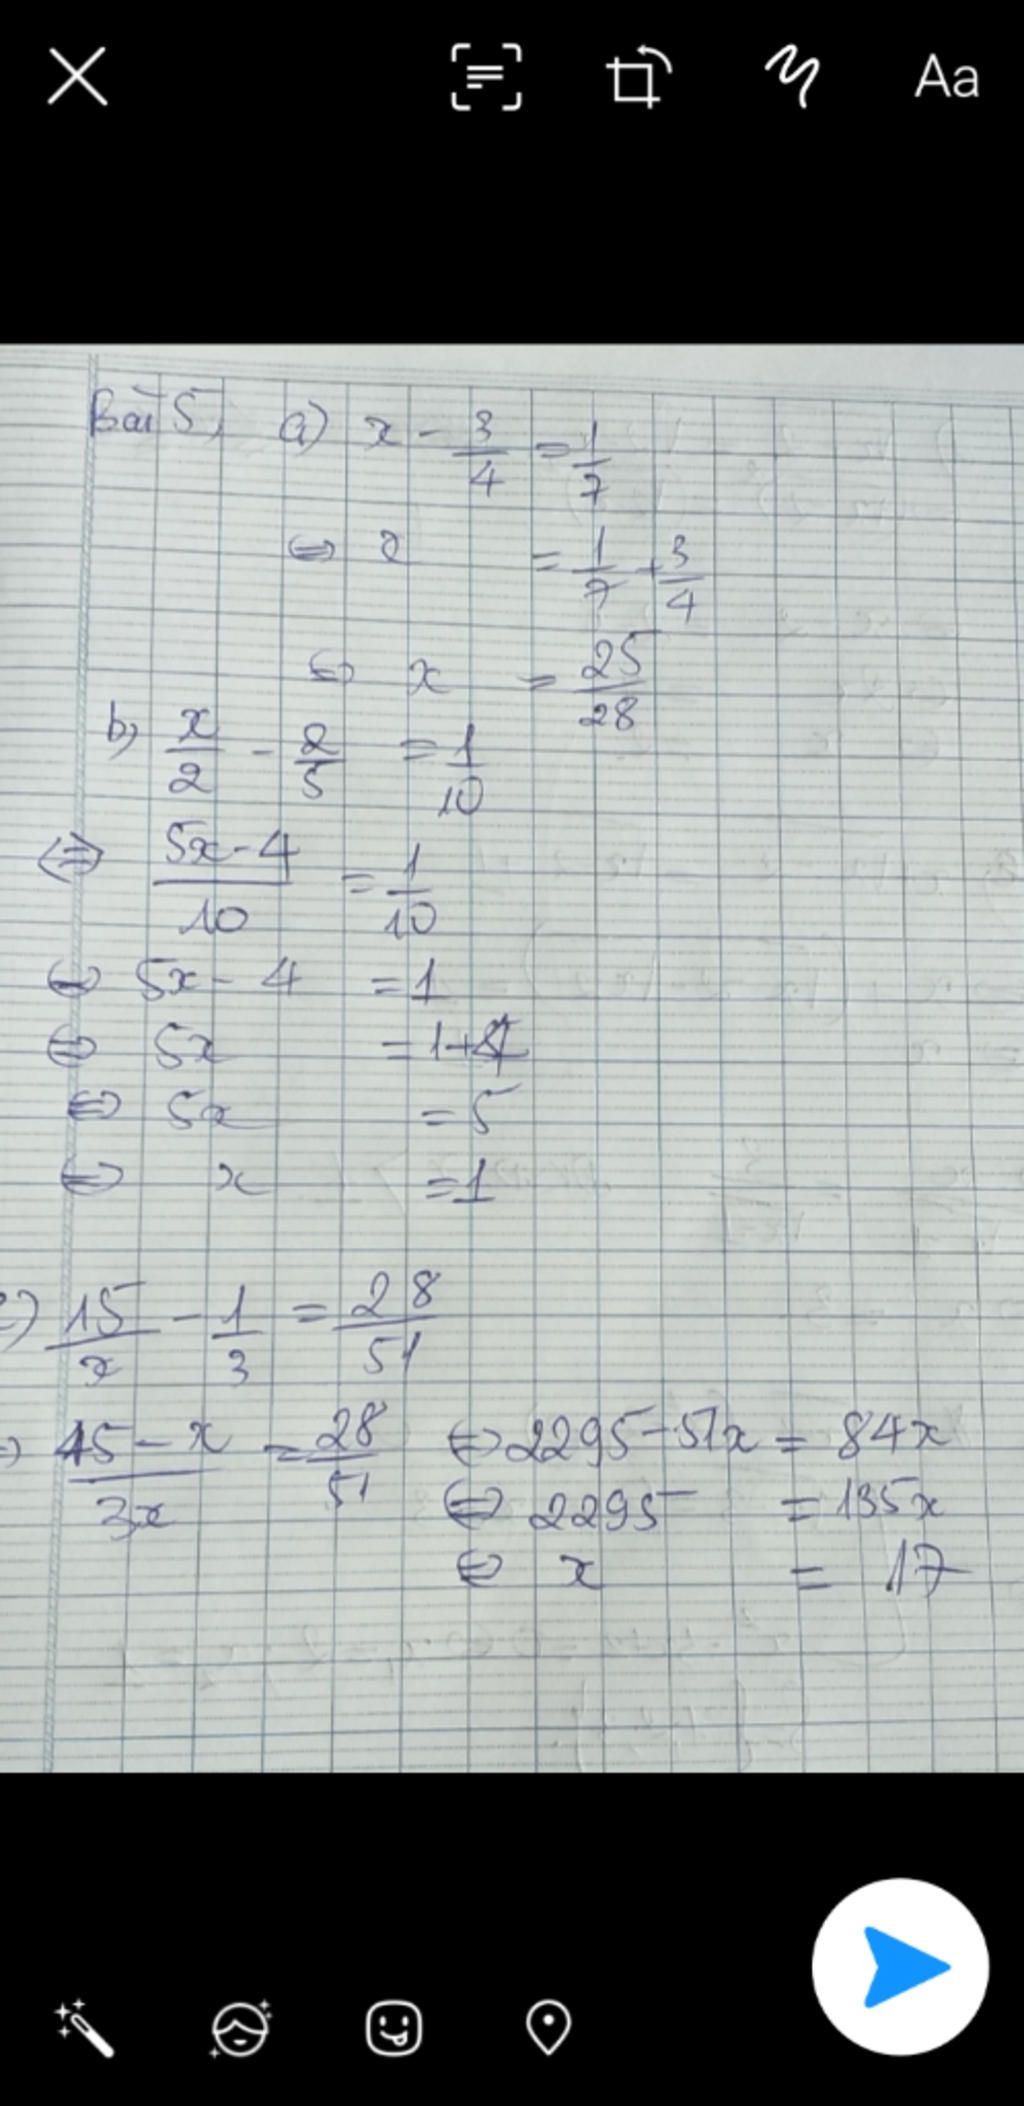 Aa
Bài 5) a) x - 3/4 = 1/7
⇔ x = 1/7 + 3/4
⇔ x = 25/28
b) x/2 - 2/5 = 1/10
⇔ (5x - 4)/10 = 1/10
⇔ 5x - 4 = 1
⇔ 5x = 1 + 4
⇔ 5x = 5
⇔ x = 1
c) 15/x - 1/3 = 28/51
⇔ (45 - x)/3x = 28/51
⇔ 2295 - 51x = 84x
⇔ 2295 = 135x
⇔ x = 17